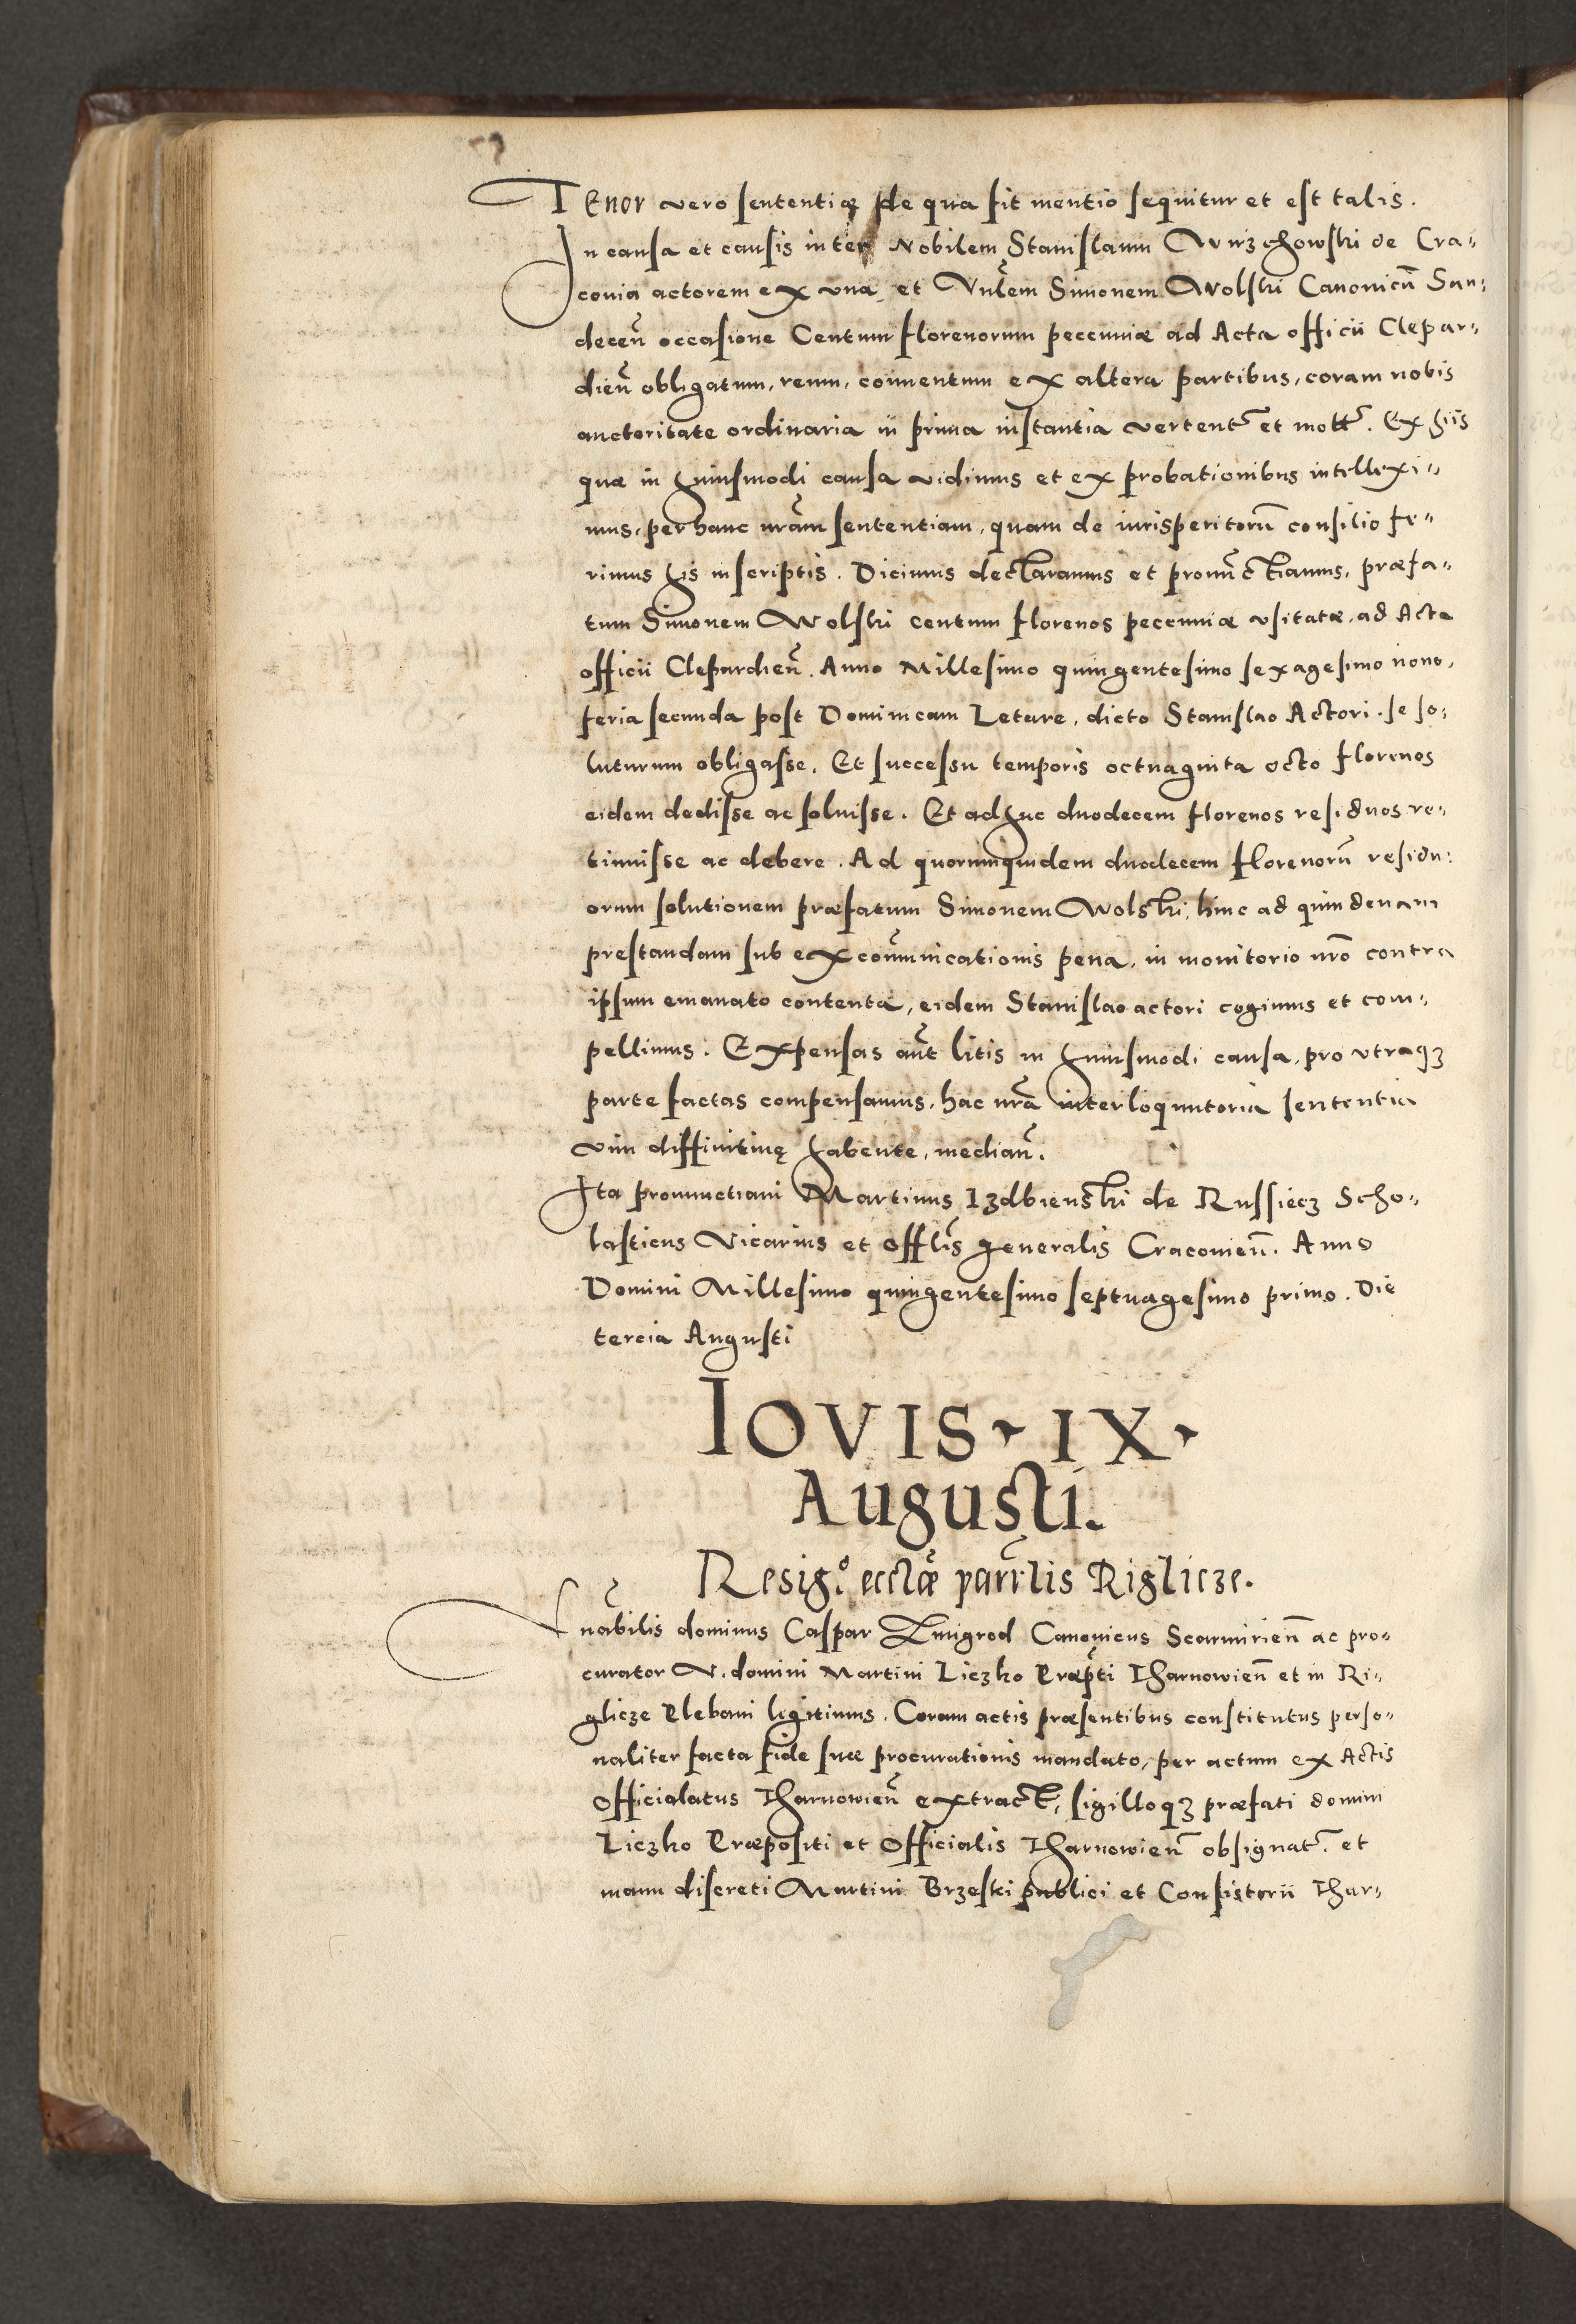 Tenor vero sententię de qua fit mentio sequitur et est talis.
In causa et causis inter Nobilem Stanislaum Wurzchowski de Cra⸗
couia actorem ex vna, et Vnl̃em Simonem Wolski Canonicũ San⸗
deceñ occasione Centum florenorum peccuniæ ad Acta officii Clepar⸗
dieñ obligatum, reum, conuentum ex altera partibus, coram nobis
auctoritate ordinaria in prima instantia vertent̃ et mott̃. Ex hiis
quæ in huiusmodi causa vidimus et ex probationibus intellexi⸗
mus, per hanc nr̃am sententiam, quam de iurisperitorũ consilio fe⸗
rimus his in scriptis. Dicimus declaramus et pronũctiamus, præfa⸗
tum Simonem Wolski centum florenos peccuniæ vsitatæ, ad Acta
officii Clepardieñ. Anno Millesimo quingentesimo sexagesimo nono,
feria secunda post Dominicam Letare, dicto Stanislao Actori. se so⸗
luturum obligasse. Et successu temporis octuaginta octo florenos
eidem dedisse ac soluisse. Et adhuc duodecem florenos residuos re⸗
tinuisse ac debere. Ad quorumquidem duodecem florenorũ residu⸗
orum solutionem præfatum Simonem Wolski, hinc ad quindenam
prestandam sub excom̃unicationis pena, in monitorio nr̃o contra
ipsum emanato contenta, eidem Stanislao actori cogimus et com⸗
pellimus. Expensas aũt litis in huiusmodi causa, pro vtraqꝫ
parte factas compensamus, hac nr̃a interloquutoria sententia
vim diffinitiuę habente, mediañ.
Ita pronunctiaui Martinus Izdbienski de Russiecz Scho⸗
lasticus Vicarius et offl̃is generalis Cracouieñ. Anno
Domini Millesimo quingentesimo septuagesimo primo. Die
tercia Augusti
IOVIS IX
Augusti.
Resig.º eccl̃æ parr̃lis Riglicze.
Vnãbilis dominus Caspar Zmigrod Canonicus Scarmirieñ ac pro⸗
curator V. domini Martini Liczko Præp̃ti Tharnowieñ et in Ri⸗
glicze Plebani legitimus. Coram actis præsentibus constitutus perso⸗
naliter facta fide suæ procurationis mandato, per actum ex Actis
Officialatus Tharnowieñ extract̃, sigilloqꝫ præfati domini
Liczko Præpositi et Officialis Tharnowieñ obsignat̃. et
manu discreti Martini Brzeski publici et Consistorii Thar⸗